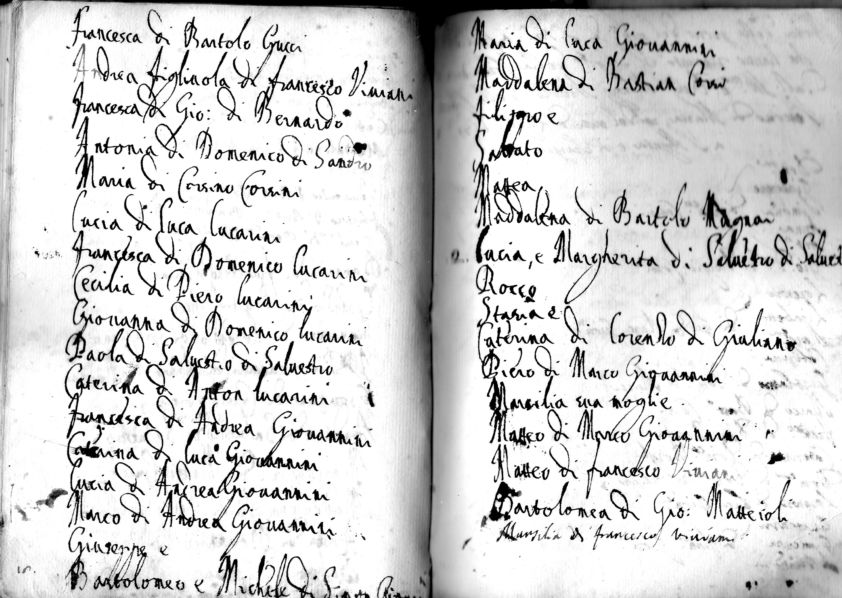 Francesca di Bartolo Gucci
Andrea figliuola di francesco Viviani
francesca di Gio: di Bernardo
Antonia di Domenico di Sandro
Maria di Corsino Corsini
Lucia di Luca Lucarini
francesca di Domenico Lucarini
Cecilia di Piero Lucarini
Giovanna di Domenico Lucarini
Paola di Saluestro di Saluestro
Caterina di Anton Lucarini
francesca di Andrea Giovannini
Caterina di Luca Giouannini
Lucia di Andrea Giouannini
Marco di Andrea Giouannini
Giuseppe e
Bartolomeo e Michele di
Maria di Luca Giouannini
Maddalena di Bastian Corsi
filippo e
Sabato
Mattea
Maddalena di Bartolo Magnai
Lucia, e Margherita di Saluestro di
Rocco
Stasia e
Caterina di Lorenzo di Giuliano
Piero di Marco Giouannini
Marsilia sua moglie
Matteo di Marco Giouannini
Matteo di francesco Viviani
Bartolomea di Gio: Matteioli
Marsilia di francesco viviani